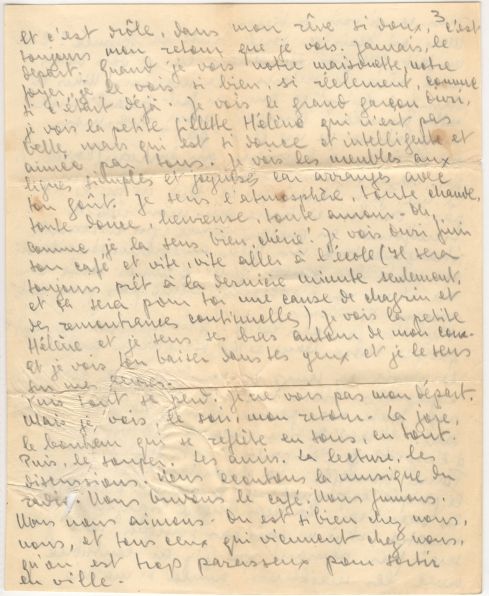 3
Et c'est drôle, dans mon rêve si doux, c'est
toujours mon retour que je vois. Jamais, le
départ. Quand je vois notre maisonnette, notre
foyer, je le vois si bien, si réelement, comme
si c'était déjà. Je vois le grand garçon Ouri,
je vois la petite fillette Hélène qui n'est pas
belle, mais qui est si douce et intelligente et
aimée par tous. Je vois les meubles aux
lignes simples et exquises car arrangés avec
ton goût. Je sens l'atmosphère, toute chaude,
toute douce, heureuse, toute amour. Oh,
comme je la sens bien, chérie! Je vois Ouri finir
son café et vite, vite aller à l'école (Il sera
toujours prêt à la dernière minute seulement,
et ça sera pour toi une cause de chagrin et
des remontrances continuelles) Je vois la petite
Hélène et je sens ses bras autour de mon cou.
Et je vois ton baiser dans tes yeux et je le sens
sur mes lèvres.
Puis tout se perd. Je ne vois pas mon départ.
Mais je vois, le soir, mon retour. La joie,
le bonheur qui se reflète en tous, en tout.
Puis, le souper. Les amis. La lecture, les
discussions. Nous écoutons la musique du
radio. Nous buvons le café. Nous fumons.
Nous nous aimons. On est si bien chez nous,
nous, et tous ceux qui viennent chez nous,
qu'on est trop paresseux pour sortir
en ville.